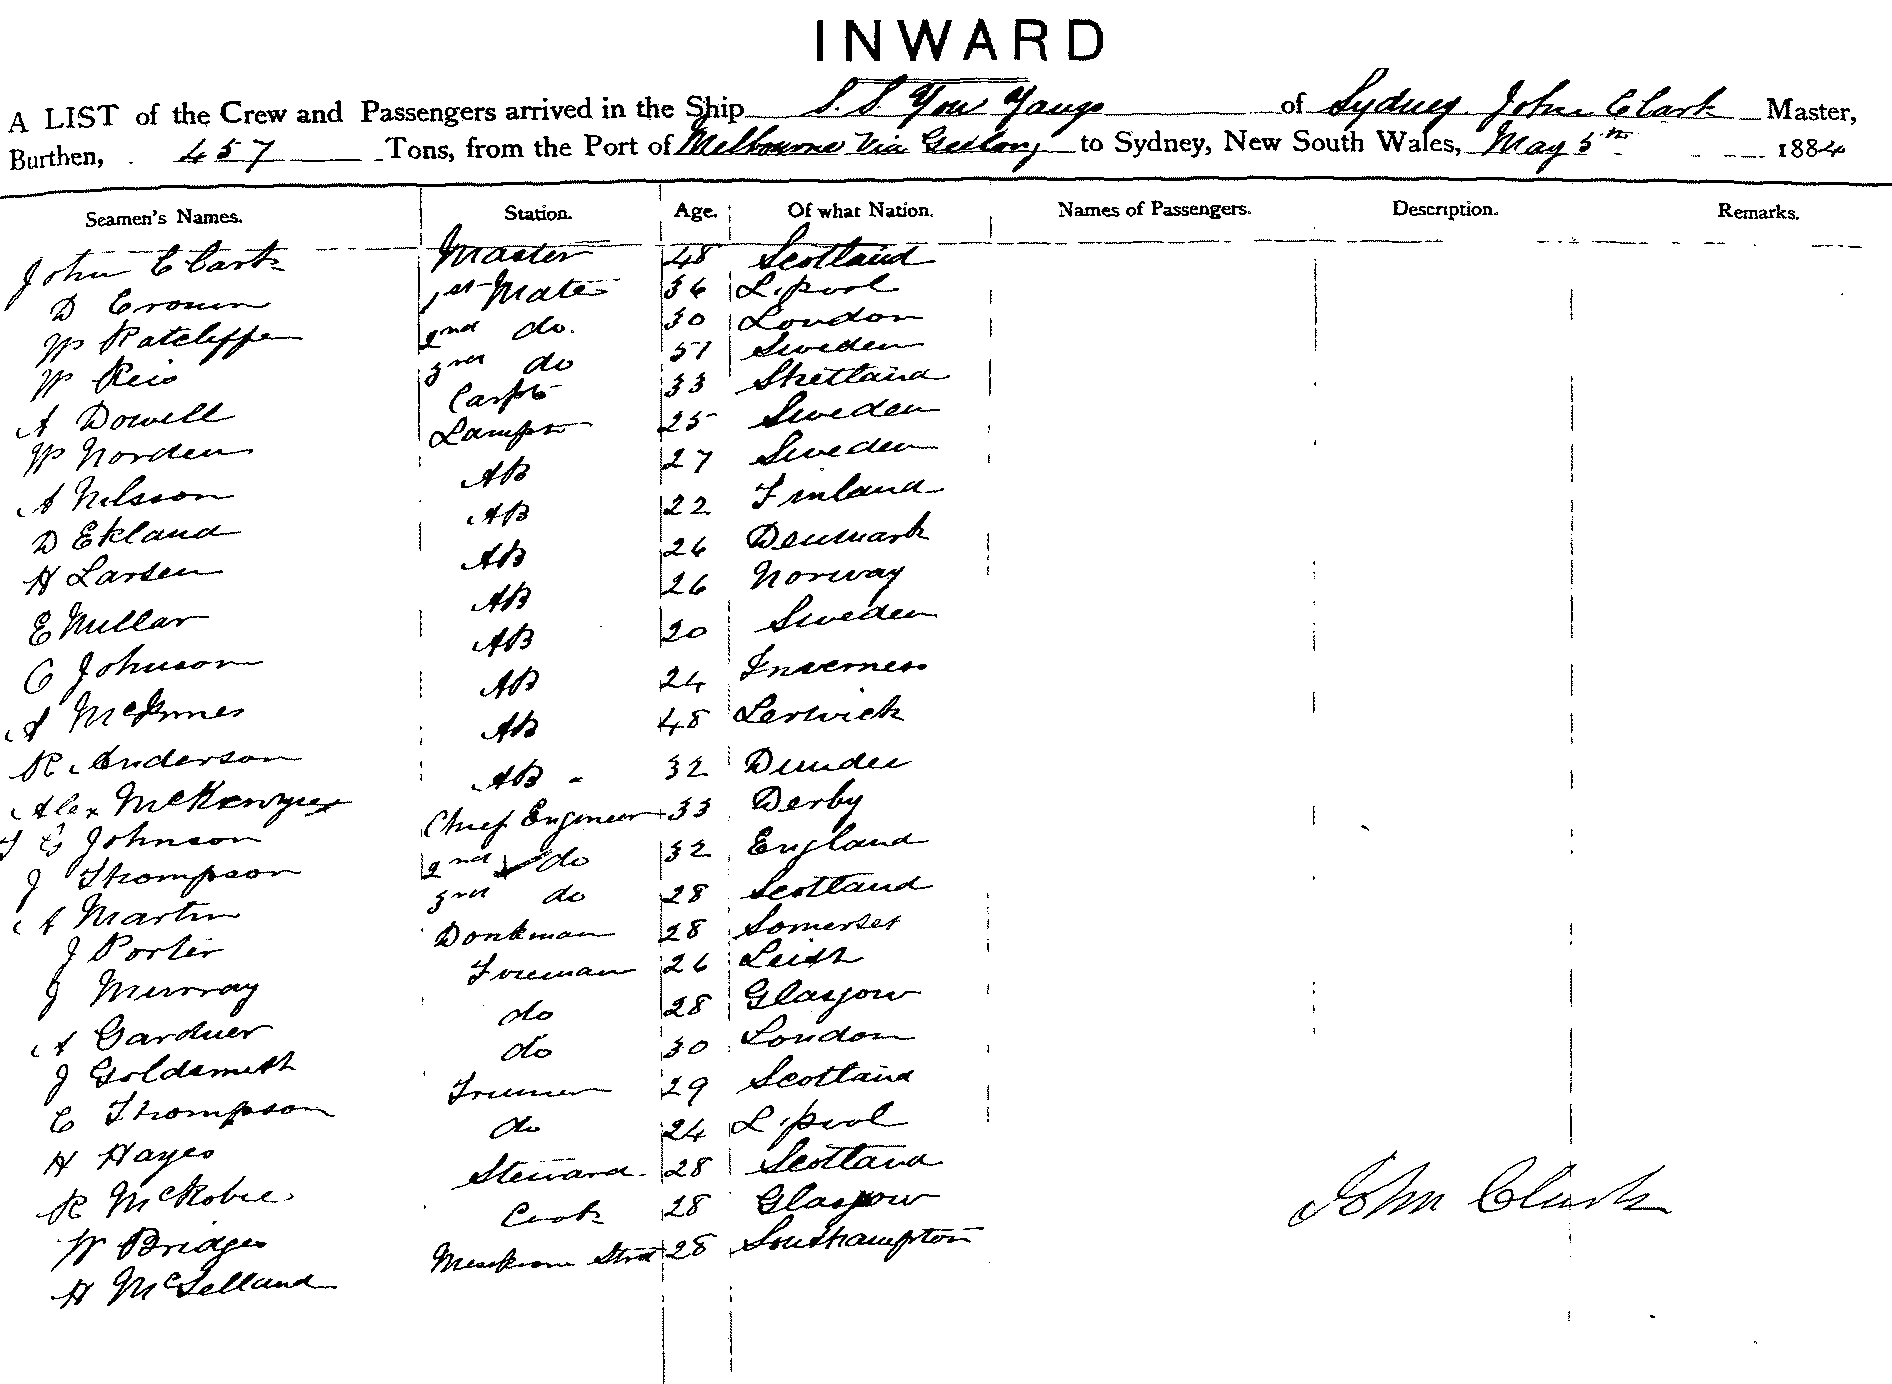 INWARD
A LIST of the Crew and Passengers arrived in the Ship S.S. You Yangs of Sydney John Clark Master,
Burthen, 457 Tons, from the Port of Melbourne Via Geelong to Sydney, New South Wales, May 5th 1884
Seamen's Names. Station. Age. Of what Nation. Names of Passengers. Description. Remarks.
John Clark Master 48 Scotland
D Cronin 1st Mate 36 L.pool
W Ratcliffe 2nd do. 30 London
W Reis 3rd do 51 Sweden
A Dowell Carptr 33 Shetland
W Norden Lampsr 25 Sweden
A Nilsson AB 27 Sweden
D Ekland AB 22 Finland
H Larsen AB 26 Denmark
E Millar AB 26 Norway
C Johnson AB 20 Sweden
A McInnes AB 24 Inverness
R Anderson AB 48 Lerwick
Alex McKenzie AB 32 Dundee
E Johnson Chief Engineer 33 Derby
J Thompson 2nd do 32 England
A Martin 3rd do 28 Scotland
J Porter Donkman 28 Somerset
J Murray Fireman 26 Leith
A Gardner do 28 Glasgow
J Goldsmith do 30 London
C Thompson Trimmer 29 Scotland
H Hayes do 24 L.pool
R McRobie Steward 28 Scotland
W Bridges Cook 28 Glasgow
H McLelland Messroom Stwd 28 Southampton
John Clark